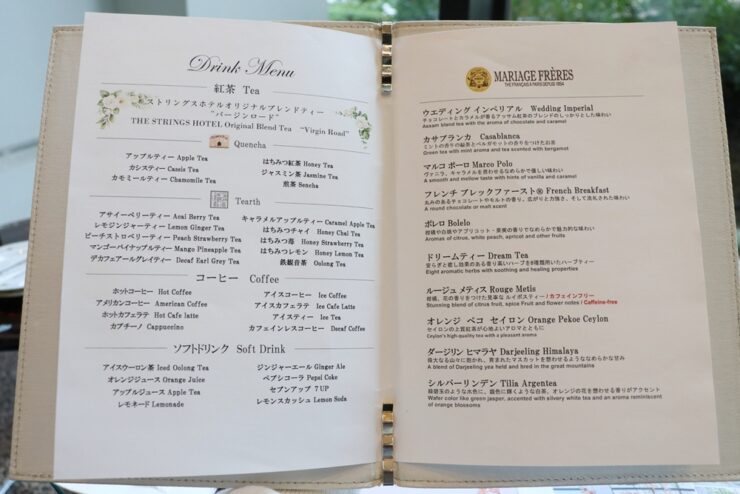 Drink Menu
紅茶 Tea
ストリングスホテルオリジナルブレンドティー
"バージンロード"
THE STRINGS HOTEL Original Blend Tea "Virgin Road"
Quencha
アップルティー Apple Tea
カシスティー Caseis Tea
カモミールティー Chamomile Tea
はちみつ紅茶 Honey Tea
ジャスミン茶 Jasmine Tea
煎茶 Sencha
Tearth
アサイーベリーティー Acai Berry Tea
レモンジンジャーティー Lemon Ginger Tea
ピーチストロベリーティー Peach Strawberry Tea
マンゴーパイナップルティー Mango Pineapple Tea
デカフェアールグレイティー Decaf Earl Grey Tea
キャラメルアップルティー Caramel Apple Tea
はちみつチャイ Honey Chai Tea
はちみつ苺 Honey Strawberry Tea
はちみつレモン Honey Lemon Tea
鉄観音茶 Oolong Tea
コーヒー Coffee
ホットコーヒー Hot Coffee
アメリカンコーヒー American Coffee
ホットカフェラテ Hot Cafe Latte
カプチーノ Cappuccino
アイスコーヒー Ice Coffee
アイスカフェラテ Ice Cafe Latte
アイスティー Ice Tea
カフェインレスコーヒー Decaf Coffee
ソフトドリンク Soft Drink
アイスウーロン茶 Iced Oolong Tea
オレンジジュース Orange Juice
アップルジュース Apple Tea
レモネード Lemonade
ジンジャーエール Ginger Ale
ペプシコーラ Pepsi Coke
セブンアップ 7UP
レモンスカッシュ Lemon Soda
MARIAGE FRÈRES
THÉ FRANÇAIS À PARIS DEPUIS 1854
ウエディング インペリアル Wedding Imperial
チョコレートとカラメルが香るアッサム紅茶のブレンドのしっかりとした味わい
Assam blend tea with the aroma of chocolate and caramel
カサブランカ Casablanca
ミントの香りの緑茶とベルガモットの香りをつけたお茶
Green tea with mint aroma and tea scented with bergamot
マルコ ポーロ Marco Polo
ヴァニラ、キャラメルを思わせるなめらかで優しい味わい
A smooth and mellow taste with hints of vanilla and caramel
フレンチ ブレックファースト® French Breakfast
丸みのあるチョコレートやモルトの香り。広がりと力強さ、そして洗練された味わい
A round chocolate or malt scent
ボレロ Bolelo
柑橘や白桃やアプリコット・果検の香りでなめらかで魅力的な味わい
Aromas of citrus, white peach, apricot and other fruits
ドリームティー Dream Tea
安らぎと癒し効果のある香り高いハーブを8種類用いたハーブティー
Eight aromatic herbs with soothing and healing properties
ルージュ メティス Rouge Metis
柑橘、花の香りをつけた見事な ルイボスティー / カフェインフリー
Stunning blend of citrus fruit, spice Fruit and flower notes / Caffeine-free
オレンジ ペコ セイロン Orange Pekoe Ceylon
セイロンの上質紅茶が心地よいアロマとともに
Ceylon's high-quality tea with a pleasant aroma
ダージリン ヒマラヤ Darjeeling Himalaya
偉大なる山々に抱かれ、育まれたマスカットを想わせるようななめらかな甘み
A blend of Darjeeling yea held and bred in the great mountains
シルバーリンデン Tilia Argentea
緑碧玉のような水色に、銀色に輝くような白茶、オレンジの花を想わせる香りがアクセント
Wafer color like green jasper, accented with silvery white tea and an aroma reminiscent
of orange blossoms